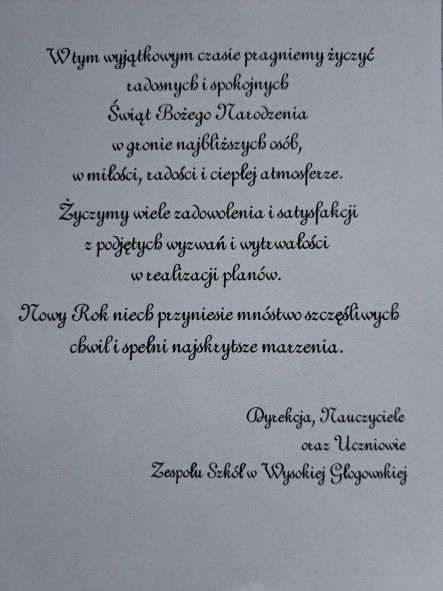 W tym wyjątkowym czasie pragniemy życzyć
radosnych i spokojnych
Świąt Bożego Narodzenia
w gronie najbliższych osób,
w miłości, radości i ciepłej atmosferze.
Życzymy wiele zadowolenia i satysfakcji
z podjętych wyzwań i wytrwałości
w realizacji planów.
Nowy Rok niech przyniesie mnóstwo szczęśliwych
chwil i spełni najskrytsze marzenia.
Dyrekcja, Nauczyciele
oraz Uczniowie
Zespołu Szkół w Wysokiej Głogowskiej